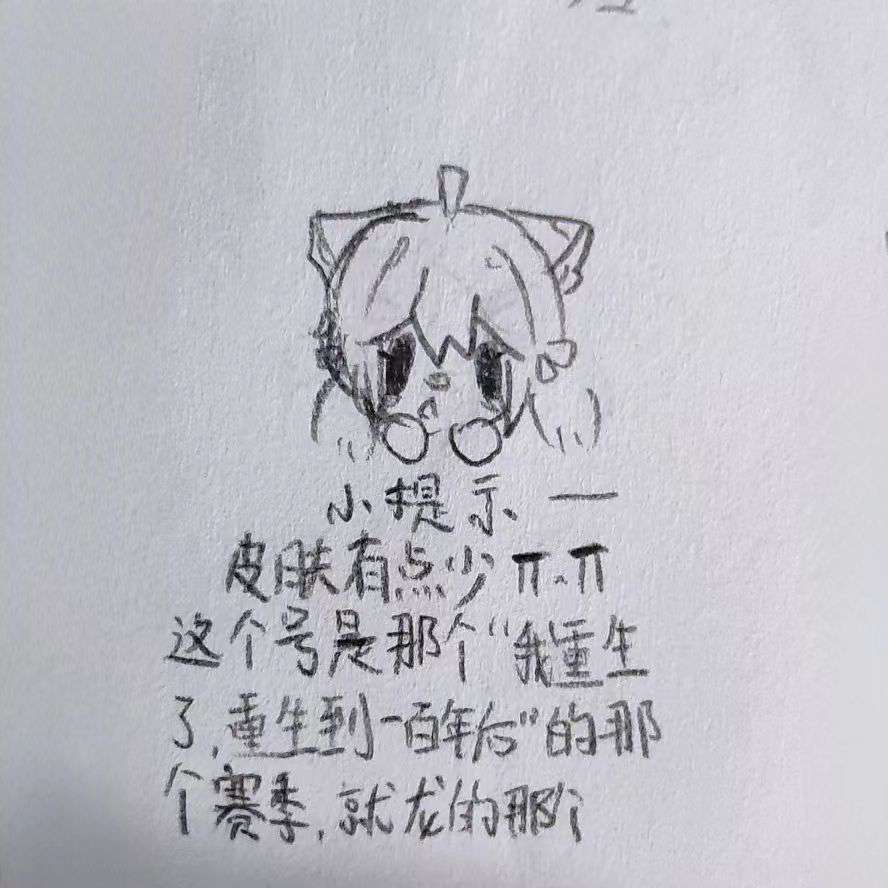 小提示一
皮肤有点少π.π
这个号是那个“我重生
了,重生到一百年后”的那
个赛季,就龙的那个